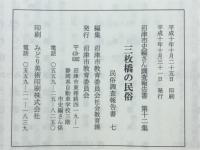 平成十年十月二十五日 印刷
平成十年十月三十一日 発行
沼津市史編さん調査報告書 第十一集
三枚橋の民俗
民俗調査報告書 七
編集 沼津市教育委員会社会教育課
発行 沼津市教育委員会
静岡県自動車学校三階
沼津市史編さん係
印刷 みどり美術印刷株式会社
電話 〇五五九-二一-一八三九